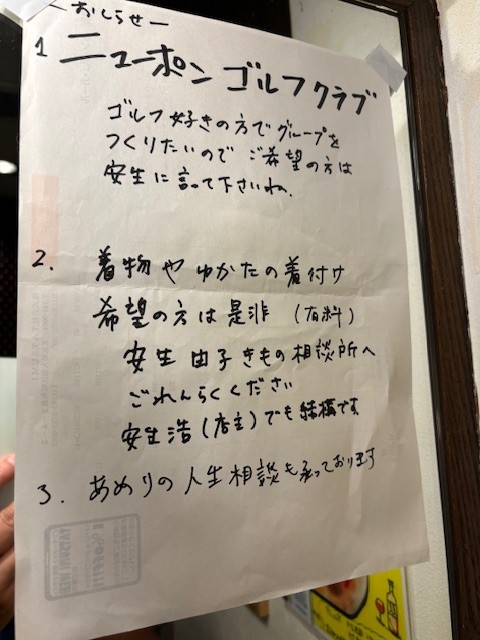 ーおしらせー
1 ニューポンゴルフクラブ
ゴルフ好きの方でグループを
つくりたいのでご希望の方は
安生に言って下さいね、
2. 着物やゆかたの着付け
希望の方は是非（有料）
安生由子きもの相談所へ
ごれんらくください
安生浩（店主）でも結構です
3. あめりの人生相談も承っております